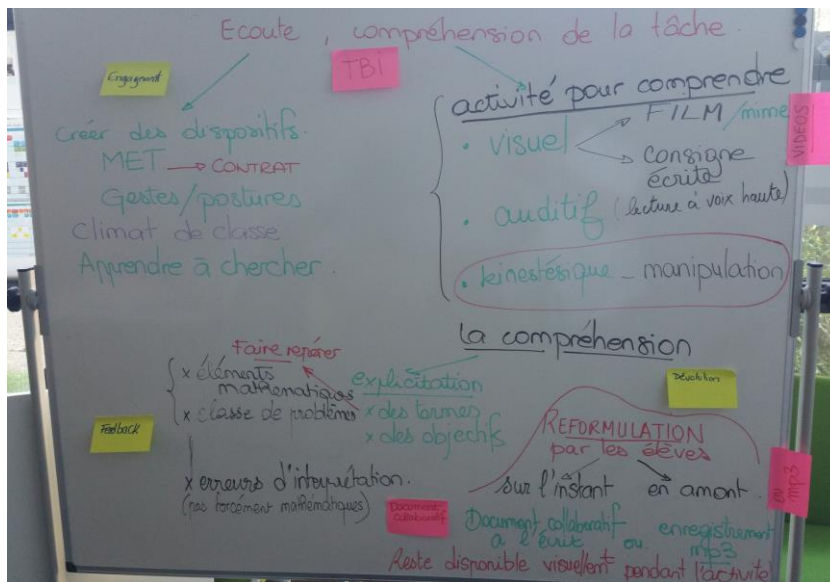 Ecoute, compréhension de la tâche.
Engageant
TBI
Créer des dispositifs.
MET → CONTRAT
Gestes/postures
Climat de classe
Apprendre à chercher.
activité pour comprendre
• visuel
FILM /mime
consigne
écrite
• auditif (lecture à voix haute)
• kinestésique - manipulation
VIDEOS
La compréhension
Faire repérer
x éléments
mathématiques
x classe de problèmes
x erreurs d'interprétation.
(pas forcément mathématiques)
Feedback
explicitation
x des termes
x des objectifs
Dévolution
REFORMULATION
par les élèves
sur l'instant en amont.
Document
collaboratif
Document collaboratif
à l'écrit ou enregistrement
mp3
Reste disponible visuellement pendant l'activité
mp3